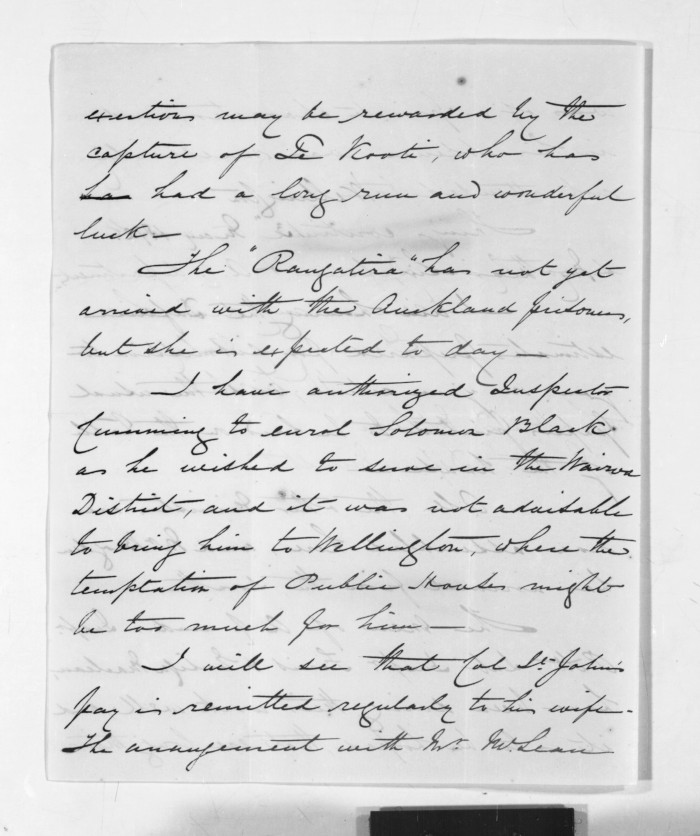 exertions may be rewarded by the
capture of Te Kooti, who has
ha had a long run and wonderful
luck—
The "Rangatira" has not yet
arrived with the Auckland prisoners,
but she is expected to day—
I have authorized Inspector
Cumming to enrol Solomon Black
as he wished to serve in the Wairoa
District, and it was not advisable
to bring him to Wellington, where the
temptation of Public Houses might
be too much for him—
I will see that Col St. John's
pay is remitted regularly to his wife—
The arrangement with Mr. McLean